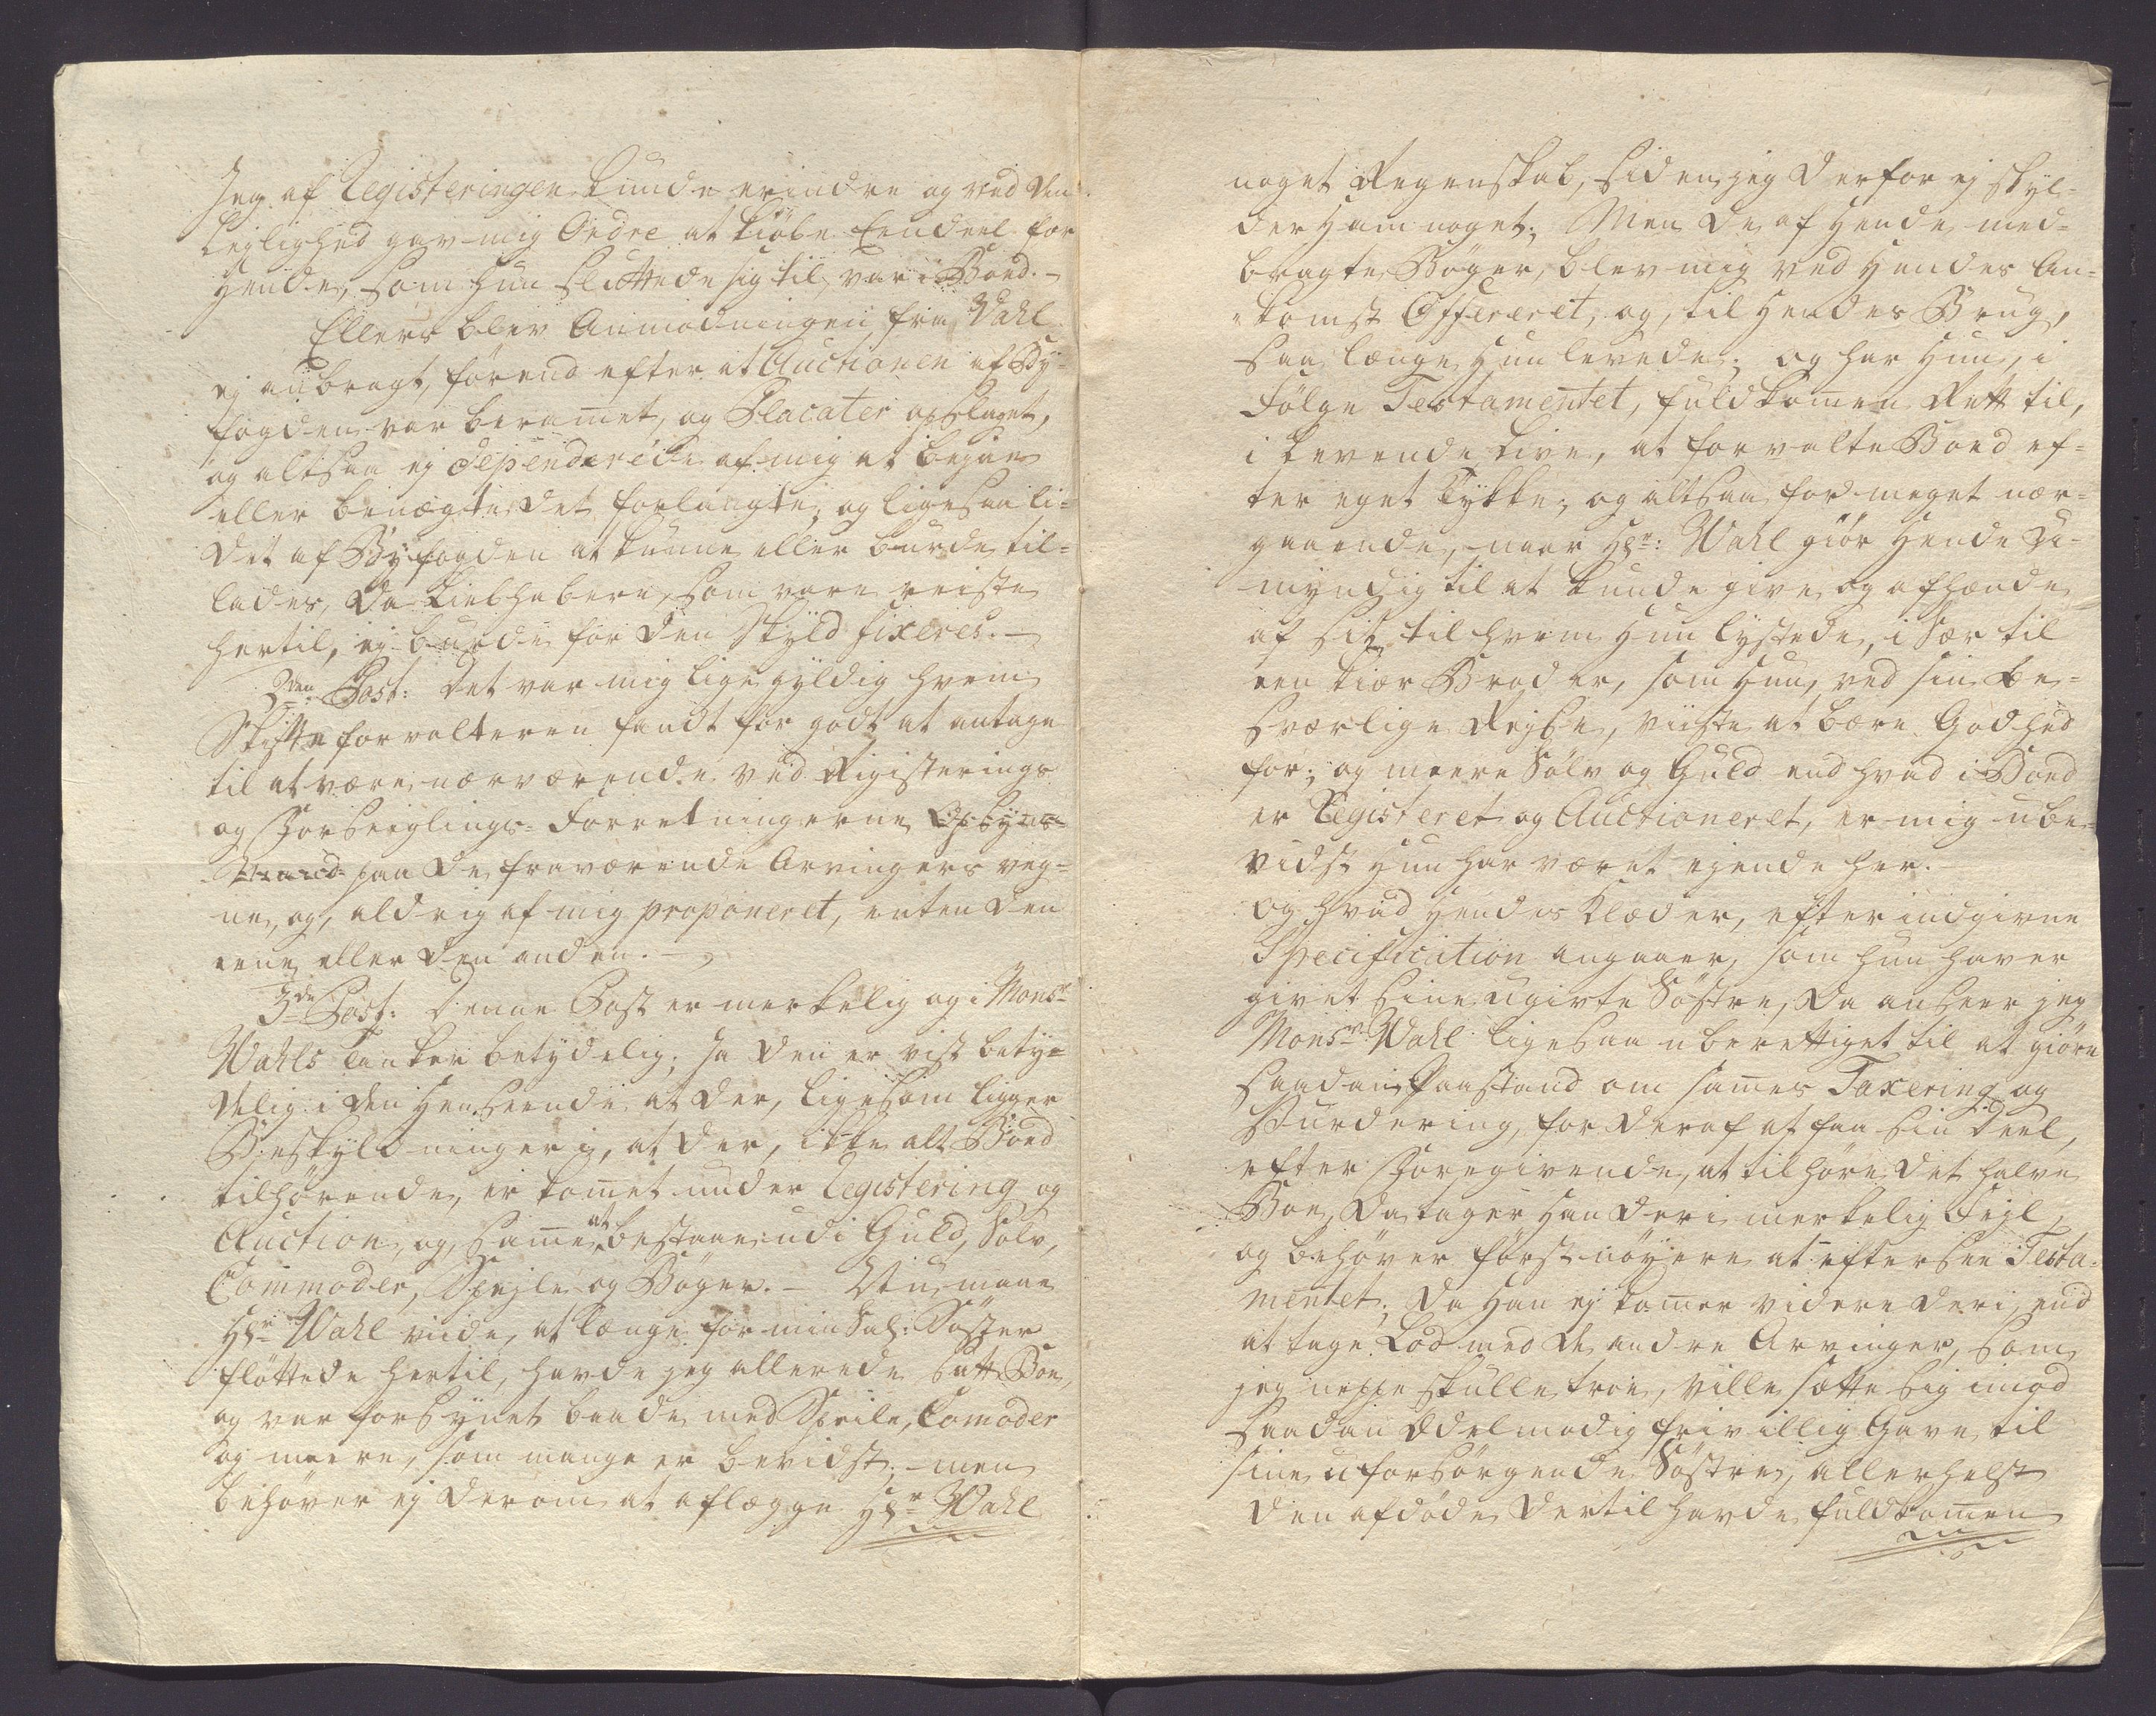 Jeg af Registeringen kunde erindre og ved den
Lejlighed gav mig Ordre at kiøbe Eendeel for
Hende, som hun sluttede sig til, var i Boed. –
Ellers blev Anmodningen fra Wahl
ej anbragt, førend efter at Auctionen af By-
fogden var beramet, og Placater opslaget,
og altsaa ej dependerede af mig at bejae
eller benægte det forlangte; og ligesaa li-
det af Byfogden at kunne eller burde til-
lades, da Liebhabere, som vare reiste
hertil, ej burde for den Skyld fixeres. –
2den Post: Det var mig lige gyldig hvem
Skifteforvalteren fandt for godt at antage
til at være nærværende ved Registerings
og Forseiglings-Forretningerne
paa de fraværende Arvingers veg-
ne, og, aldrig af mig proponeret, enten den
eene eller den anden. –
3de Post: Denne Post er merkelig og i Monsr
Wahls Tanker betydelig; Ja den er vist bety-
delig i den Henseende at der, ligesom ligger
Beskyldninger i, at der, ikke alt Boed
tilhørende, er komet under Registering og
Auction, og, same at bestaae udi Guld, Sølv,
Commoder, Spejle og Bøger. – Nu maae
Hr Wahl viide, at længe før min Sal: Søster
fløttede hertil, havde jeg allerede satt Boe,
og var forsynet baade med Speile, Comoder
og meere, som mange er bevidst; – men
behøver ej derom at aflægge Hr Wahl
noget Regenskab, siden jeg derfor ej skyl-
der Ham noget; Men de af Hende med-
bragte Bøger, blev mig ved Hendes An-
komst Offereret, og, til Hendes Brug,
saa længe Hun levede; og har Hun, i
Følge Testamentet, fuldkomen Rett til,
i Levende Live, at forvalte Boed ef-
ter eget Tykke; og altsaa for meget nær-
gaaende, naar Hr: Wahl giør Hende U-
myndig til at kunde give og afhænde
af sit til hvem Hun lystede, i sær til
een kiær Broder, som Hun, ved sin be-
sværlige Rejse, viiste at bære Godhed
for; og meere Sølv og Guld end hvad i Boed
er Registeret og Auctioneret, er mig ube-
vidst Hun har været ejende her. –
og hvad Hendes Klæder, efter indgivne
Specification angaaer, som hun haver
givet sine ugivte Søstre, da anseer jeg
Monsr Wahl ligesaa uberettiget til at giøre
saadan Paastand om sames Taxering og
Vurdering, for deraf at faa sin Deel,
efter Foregivende, at tilhøre det halve
Boe, da tager Han deri merkelig Fejl,
og behøver først nøyere at eftersee Testa-
mentet; da Han ej komer videre deri, end
at tage Lod med de andre Arvinger, som
jeg neppe skulle troe, ville sætte sig imod
saadan Ædelmodig frivillig Gave til
sine uforsørgende Søstre, allerhelst
den afdøde dertil havde fuldkomen